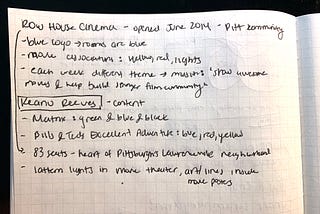 ROW HOUSE CINEMA - opened June 2014 - Pitt community
- blue logo → rooms are blue
- movie associations: yellow, red, lights
- each week different theme → mission: "show awesome
movies & help build stronger film community"
Keanu Reeves - content
- Matrix: green & blue & black
- Bill & Ted's Excellent Adventure: blue, red, yellow
- 83 seats - heart of Pittsburgh's Lawrenceville neighborhood
- lantern lights in movie theater, art/lines inside
movie posters